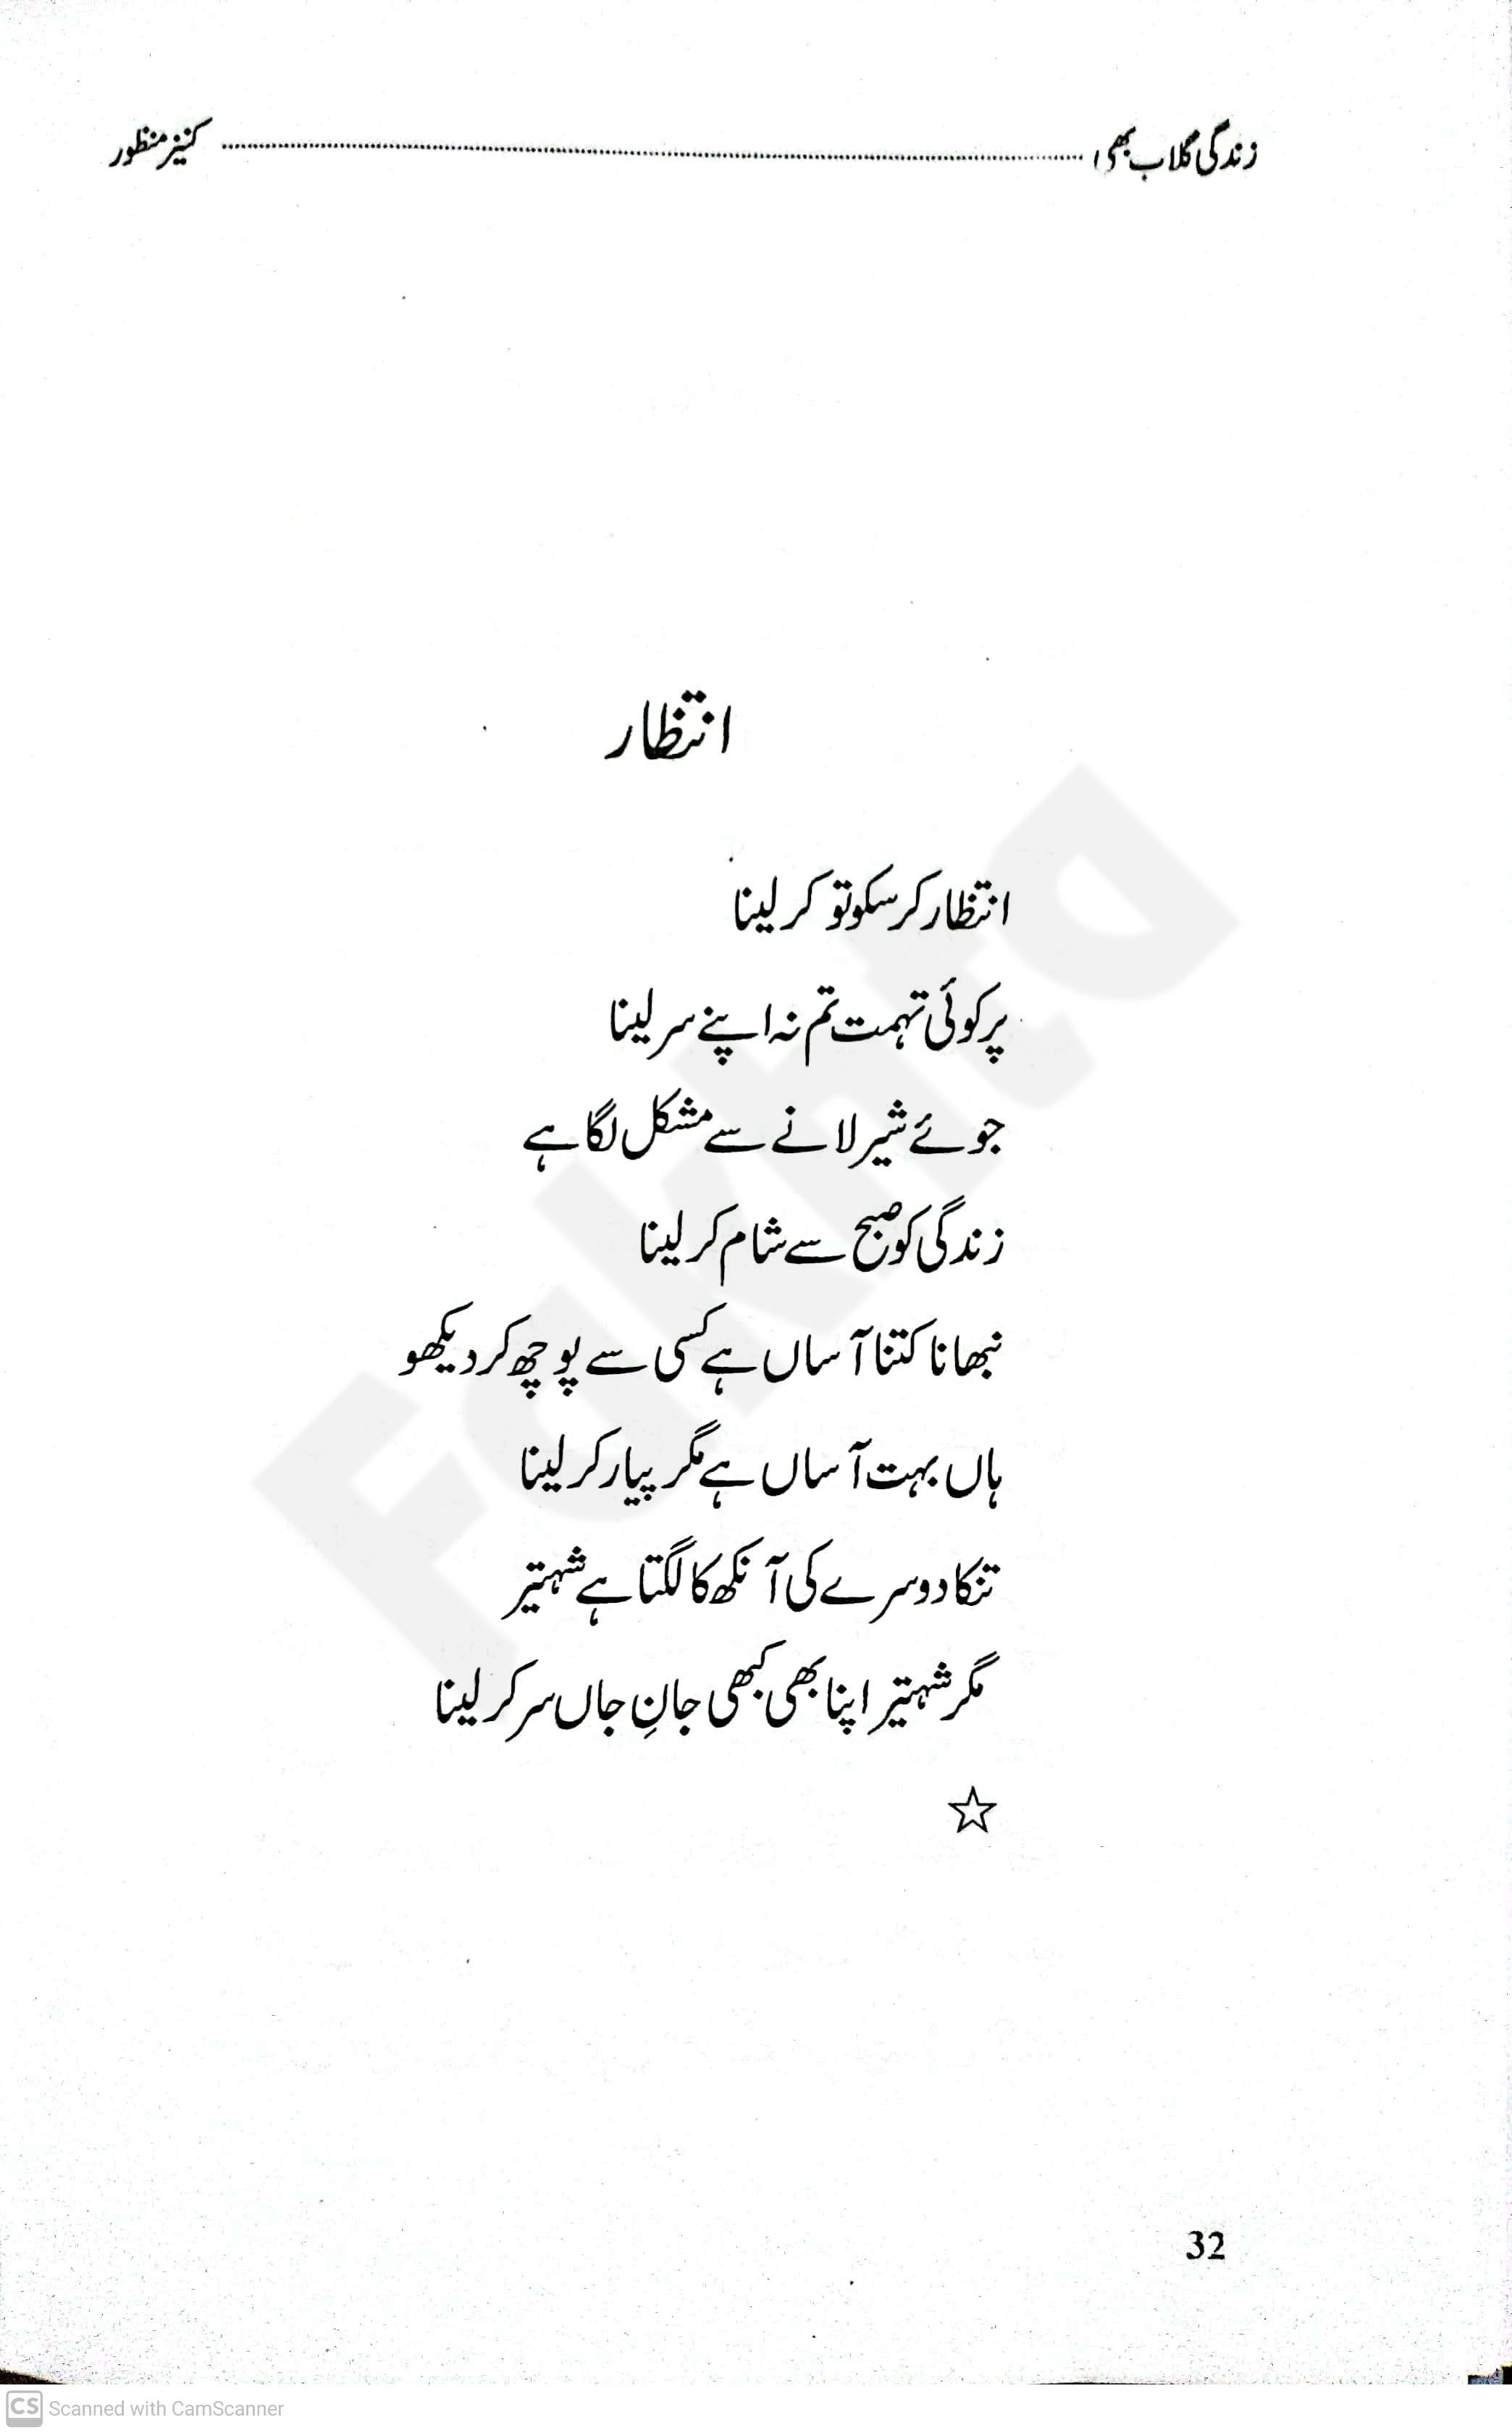 زندگی گلاب بھی ا ........................ کنیز منظور
انتظار
انتظار کر سکو تو کر لینا
پر کوئی تہمت تم نہ اپنے سر لینا
جوئے شیر لانے سے مشکل لگا ہے
زندگی کو صبح سے شام کر لینا
نبھانا کتنا آساں ہے کسی سے پوچھ کر دیکھو
ہاں بہت آساں ہے مگر پیار کر لینا
تنکا دوسرے کی آنکھ کا لگتا ہے شہتیر
مگر شہتیر اپنا بھی کبھی جانِ جاں سر کر لینا
☆
32
Fakhta
CS Scanned with CamScanner